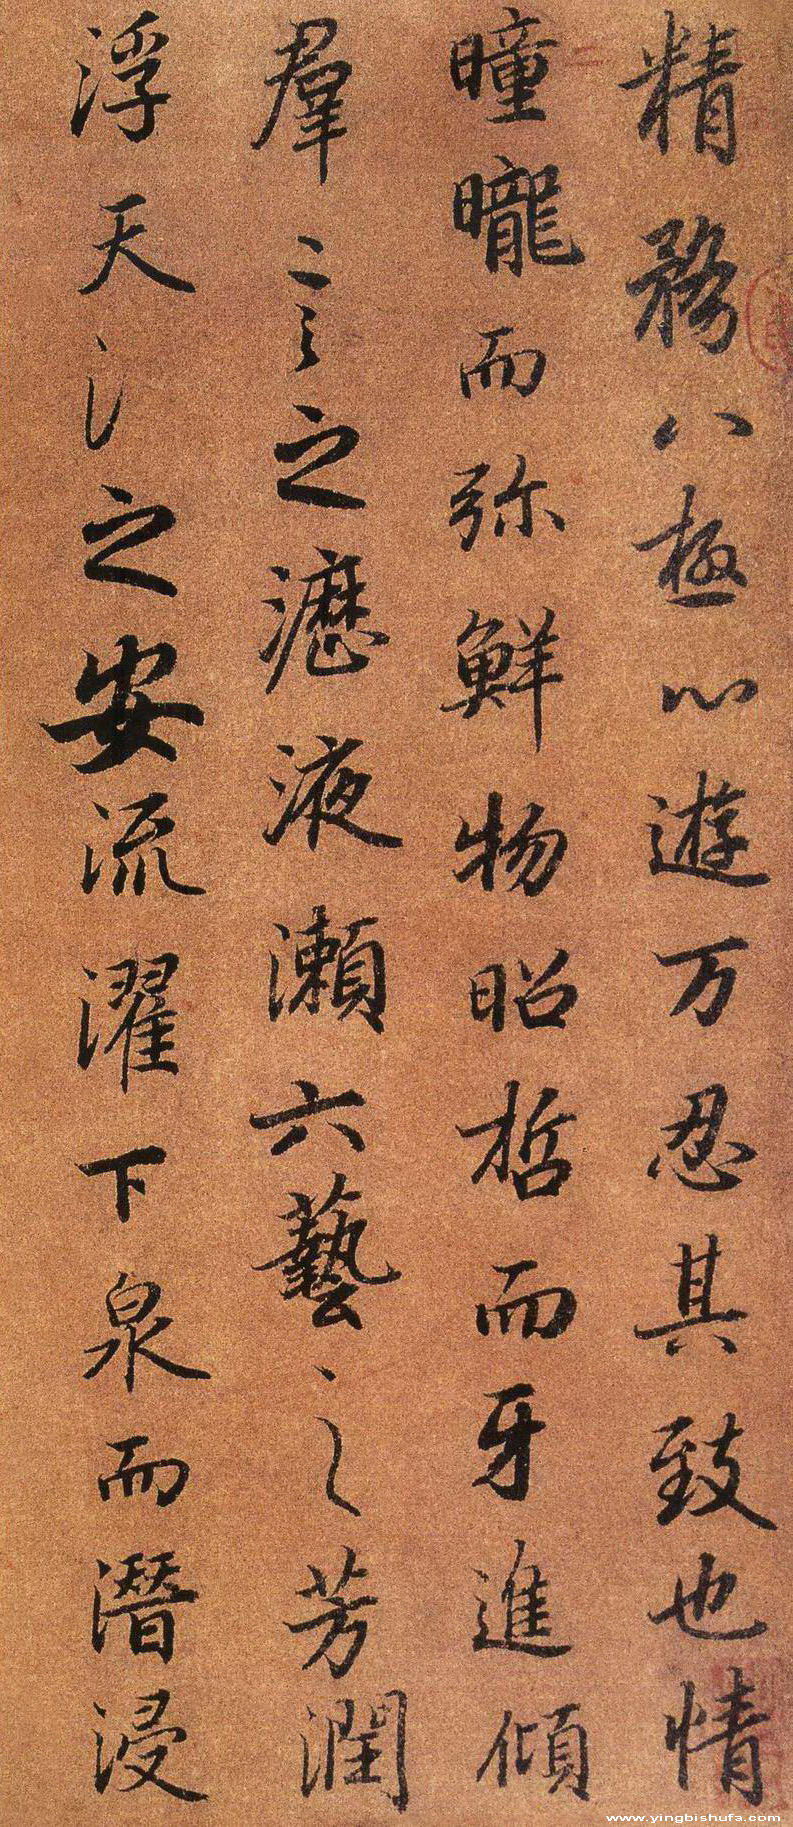 精務八極心遊万忍其致也情
曈曨而弥鮮物昭哲而牙進傾
羣言之瀝液瀨六藝之芳潤
浮天之安流濯下泉而潛浸
www.yingbishufa.com